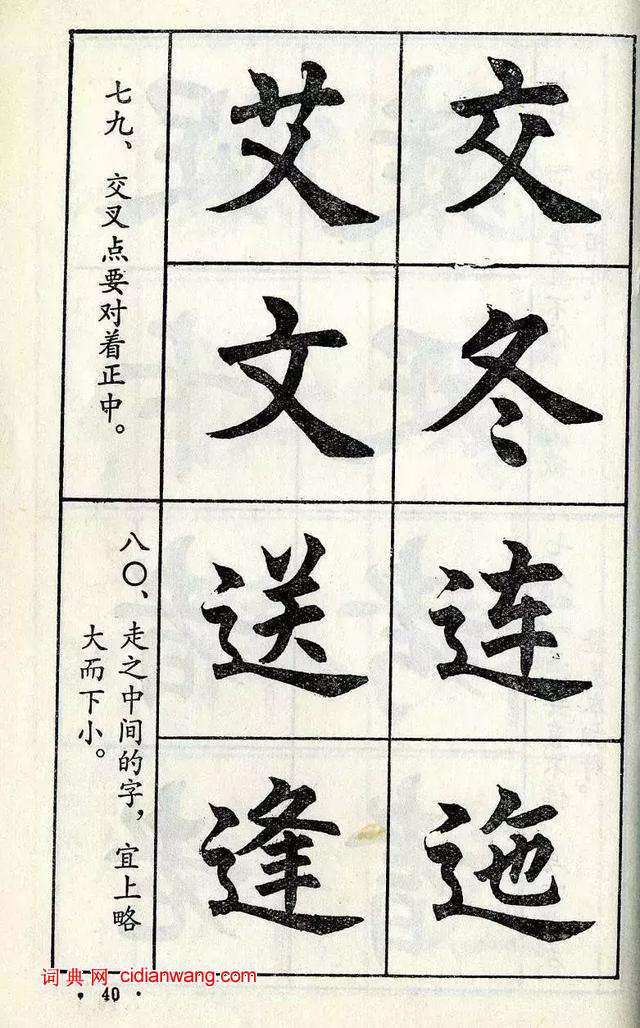 交冬
艾文
七九、交叉点要对着正中。
连迤
送逢
八〇、走之中间的字，宜上略
大而下小。
词典网 cidianwang.com
· 40 ·